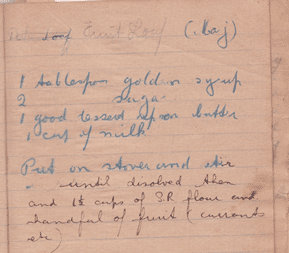 Loaf Fruit Loaf (Maj)
1 tablespon golden syrup
2 " sugar
1 good dessed spoon butter
1 cup of milk
Put on stove and stir
" until disolved then
and 1½ cups of S.R flour and
handful of fruit (currants
etc)